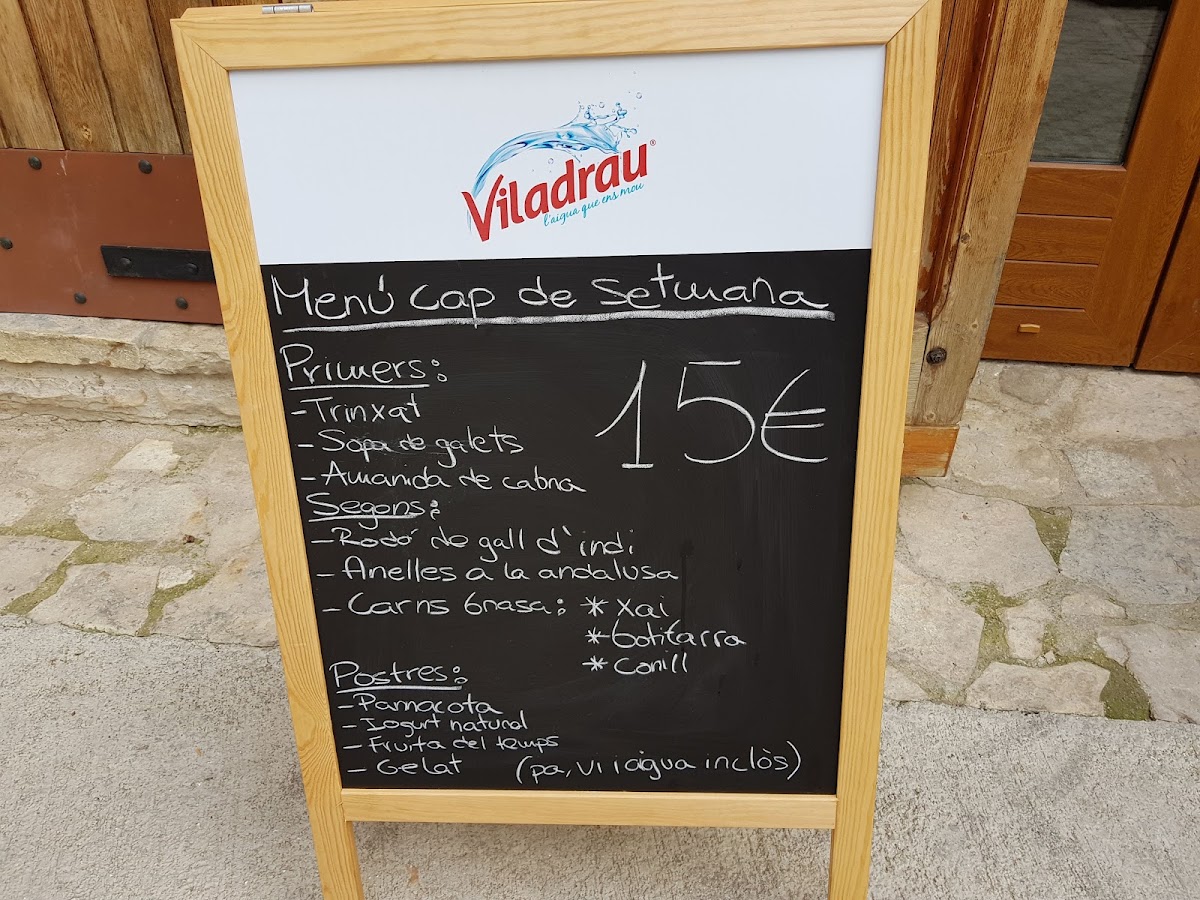 Viladrau®
l'aigua que ens mou
Menú Cap de Setmana
Primers:
15€
- Trinxat
- Sopa de galets
- Amanida de cabra
Segons:
- Rodó de gall d'indi
- Anelles a la andalusa
- Carns brasa: * Xai
* botifarra
* Conill
Postres:
- Pannacota
- Iogurt natural
- Fruita del temps
- Gelat (pa, vi i aigua inclòs)